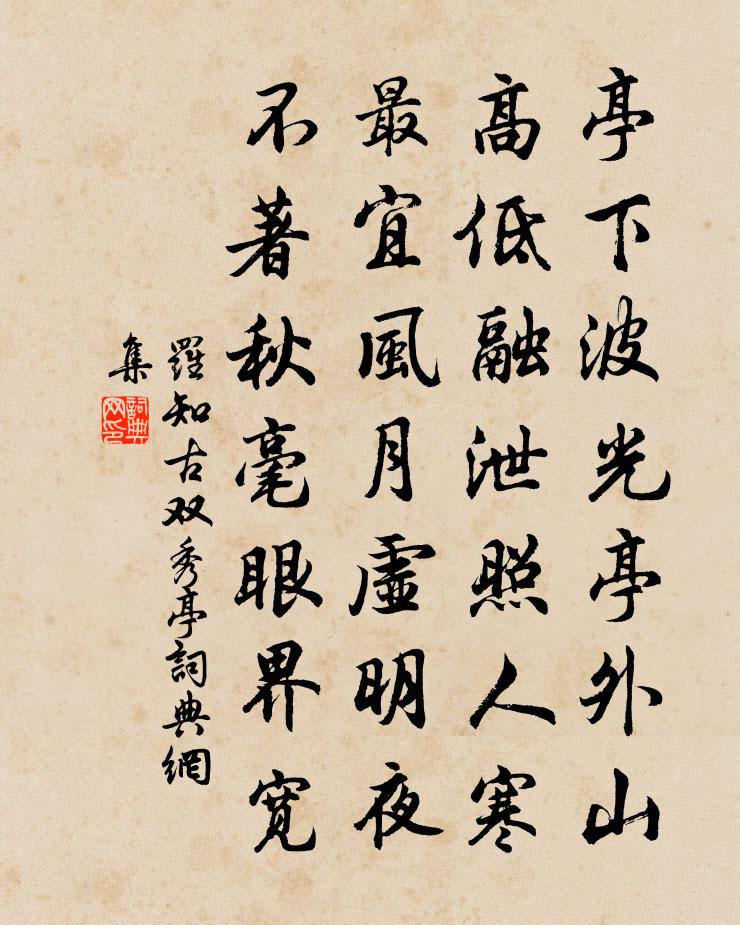 亭下波光亭外山
高低融泄照人寒
最宜風月虛明夜
不著秋毫眼界寬
羅知古双秀亭詞典網
集
詞典
网印